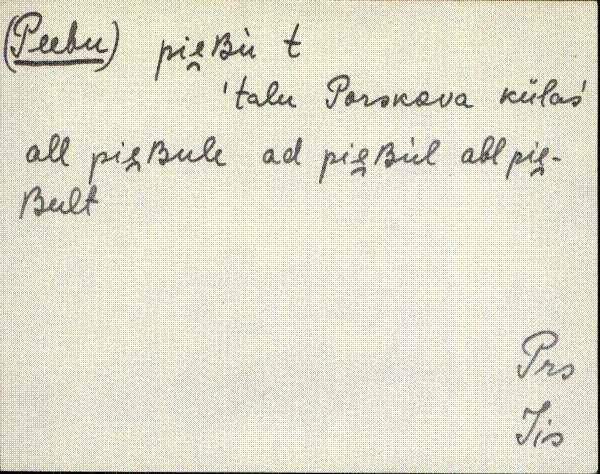 (Peebu) pie̯Bù t
'talu Porskova külas'
all pie̯Bule ad pie̯Bùl abl pie̯-
Bult
Prs
Jis